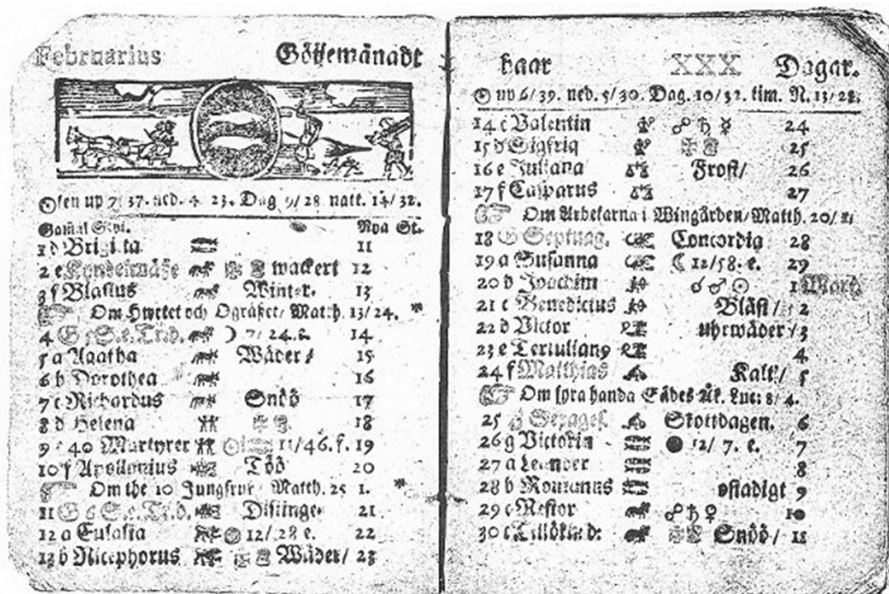 Februarius Göijemånadt
Solen up 7/ 37. ned. 4 23. Dag 9/28 natt. 14/32.
Gamal Styl. Nya St.
1 d Brigitta 11
2 e Kyndelmässe wackert 12
3 f Blasius Winter. 13
Om Hwetet och Ogräset/ Matth. 13/24. *
4 G 5 S. e. Tr. d. ☽ 7/ 24. 14
5 a Agatha Wäder/ 15
6 b Dorothea 16
7 c Richardus Snöö 17
8 d Helena 18
9 e 40 Martyrer 11/46. f. 19
10 f Apollonius Töö 20
Om the 10 Jungfrur Matth. 25 1. *
11 G 6 S. e. Tr. d. Distinge 21
12 a Eulalia 12/ 28 e. 22
13 b Nicephorus Wäder/ 23
haar XXX Dagar.
☉ up 6/39. ned. 5/30. Dag. 10/32. tim. N. 13/28.
14 c Valentin ☍ ♄ ☿ 24
15 d Sigfrid 25
16 e Juliana Frost/ 26
17 f Casparus 27
Om Arbetarna i Wingården/ Matth. 20/
18 G Septuag. Concordia 28
19 a Susanna ☾ 12/58. e. 29
20 b Joachim ☌ ♂ ☉ 1 Mart.
21 c Benedictus Blåst/ 2
22 d Victor uhrwäder/ 3
23 e Tertulian9 4
24 f Matthias Kalt/ 5
Om fyra handa Sädes Åk. Luc: 8/ 4.
25 G Sexages. Skottdagen. 6
26 g Victorin ● 12/ 7. e. 7
27 a Leander 8
28 b Romanus ostadigt 9
29 c Nestor ☍ ♄ ♀ 10
30 c Snöö/ 11